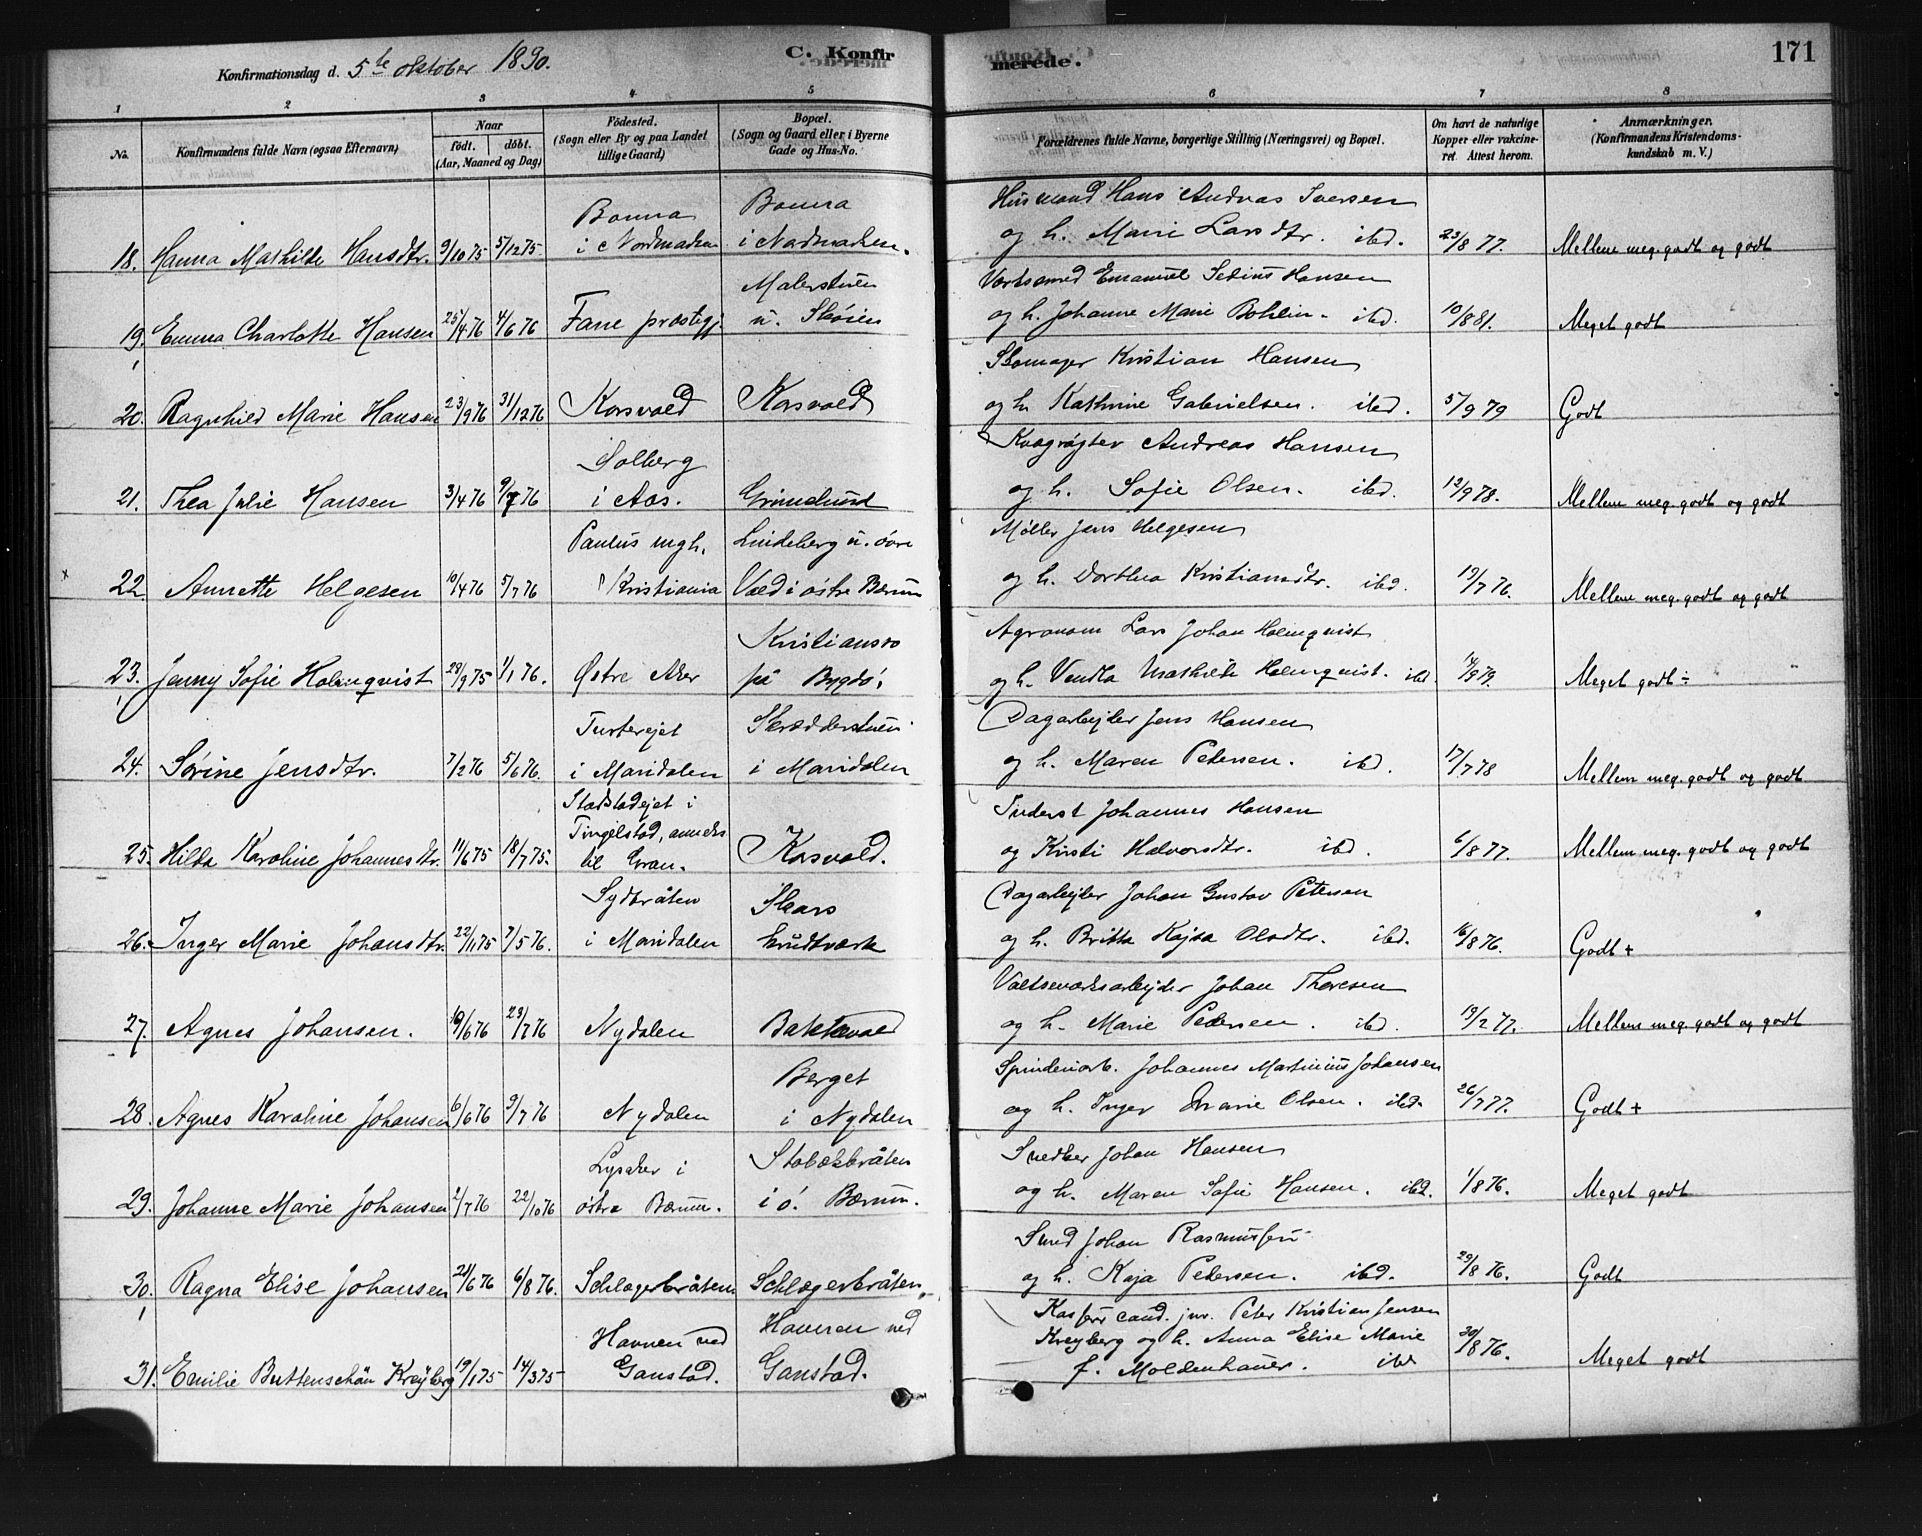 Konfirmationsdag d. 5te oktober 1890.
C. Konfir
merede.
171
1 2 3 4 5 6 7 8
No.
Konfirmandens fulde Navn (ogsaa Efternavn)
Naar
født. døbt.
(Aar, Maaned og Dag)
Fødested.
(Sogn eller By og paa Landet
tillige Gaard)
Bopæl.
(Sogn og Gaard eller i Byerne
Gade og Hus-No.
Forældrenes fulde Navne, borgerlige Stilling (Næringsvei) og Bopæl.
Om havt de naturlige
Kopper eller vakcine-
ret. Attest herom.
Anmærkninger.
(Konfirmandens Kristendoms-
kundskab m. V.)
Bonna Bonna Husmand Hans Andreas Iversen
18. Hanna Mathilde Hansdtr. 9/10 75 5/12 75 i Nordmarken i Nordmarken. og h. Marie Larsdtr. ibd. 23/8 77. Mellem meg. godt og godt
Malerstuen Værksmed Emanuel Sedius Hansen
19. Emma Charlotte Hansen 25/4 76 4/6 76 Fane præstegj u. Skøien og h. Johanne Marie Bohlin. ibd. 10/8 81. Meget godt
Skomager Kristian Hansen
20. Ragnhild Marie Hansen 23/9 76 31/12 76 Korsvold Korsvold og h. Kathrine Gabrielsen. ibd. 5/9 79 Godt
Solberg Kvægrøgter Andreas Hansen
21. Thea Julie Hansen 3/4 76 9/7 76 i Aas. Grimelund og h. Sofie Olsen. ibd. 12/9 78. Mellem meg. godt og godt
Paulus mgh. Lindeberg u. øvre Møller Jens Helgesen
x 22. Annette Helgesen 10/4 76 5/7 76 i Kristiania Vold i østre Bærum og h. Dorthea Kristiansdtr. ibd. 19/7 76. Mellem meg. godt og godt
Kristiansro Agronom Lars Johan Holmqvist
23. Jenny Sofie Holmqvist 28/9 75 1/1 76. Østre Aker på Bygdø. og h. Vendla Mathilde Holmqvist. ibd. 14/9 79. Meget godt ÷
Turterejet Skrædderstuen Dagarbejder Jens Hansen
24. Sørine Jensdtr. 7/2 76 5/6 76. i Maridalen i Maridalen og h. Maren Petersen. ibd. 17/7 78 Mellem meg. godt og godt
i Inderst Johannes Hansen
Tingelstad, anneks
25. Hilda Karoline Johannesdtr. 11/6 75 18/7 75. til Gran. Korsvold. og Kristi Halvorsdtr. ibd. 6/8 77. Mellem meg. godt og godt
Sydbråten Skars Dagarbejder Johan Gustav Petersen
26. Inger Marie Johansdtr. 22/11 75 7/5 76. i Maridalen krudtværk og h. Britta Kajsa Olsdtr. ibd. 16/8 76. Godt +
Valseværksarbejder Johan Thoresen
27. Agnes Johansen. 19/6 76 23/7 76 Nydalen Bakkevold og h. Marie Pedersen. ibd. 19/2 77. Mellem meg. godt og godt
Berget Spinderiarb. Johannes Martinius Johansen
28. Agnes Karoline Johansen 6/6 76 9/7 76 Nydalen i Nydalen og h. Inger Marie Olsen. ibd. 26/7 77. Godt +
Lysaker i Stabækbråten Snedker Johan Hansen
29. Johanne Marie Johansen 2/7 76 22/10 76 østre Bærum. i ø. Bærum. og h. Maren Sofie Hansen. ibd. 1/8 76. Meget godt
Smed Johan Rasmussen
30. Ragna Elise Johansen 21/6 76 6/8 76. Schlagerbråten Schlagerbråten. og h. Kaja Pedersen. ibd. 29/8 76. Godt
Havnen ved Havnen ved Kasserer cand. jur. Peter Kristian Jensen
Kreyberg og h. Anna Elise Marie
31. Emilie Buttenschøn Kreÿberg 19/1 75 14/3 75 Ganstad. Ganstad. f. Moldenhauer. ibd 30/8 76. Meget godt